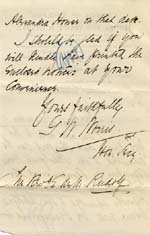 Alexandra House on that date.
I should be glad if you
will kindly have printed the
enclosed notices at your
convenience.
Yours faithfully
Hon. Sec.
The Revd. E. de M. Rudolf